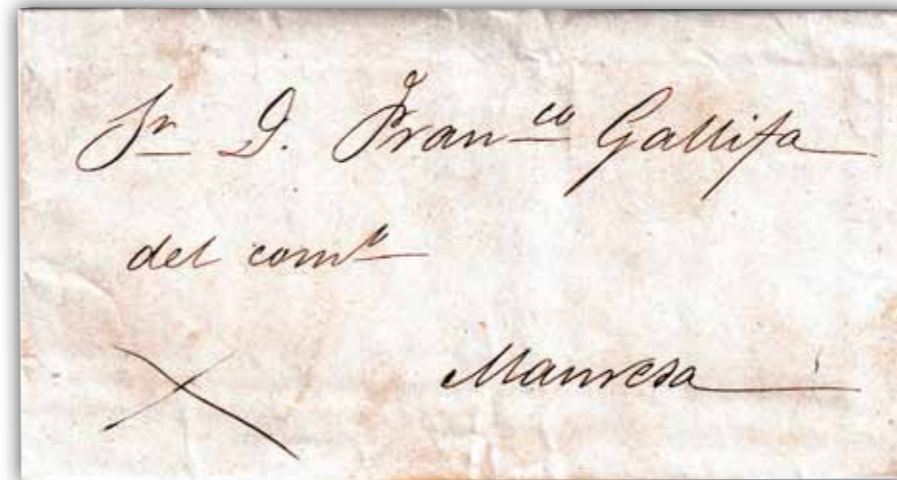 Sr D. Franco Gallifa
del como
Manresa